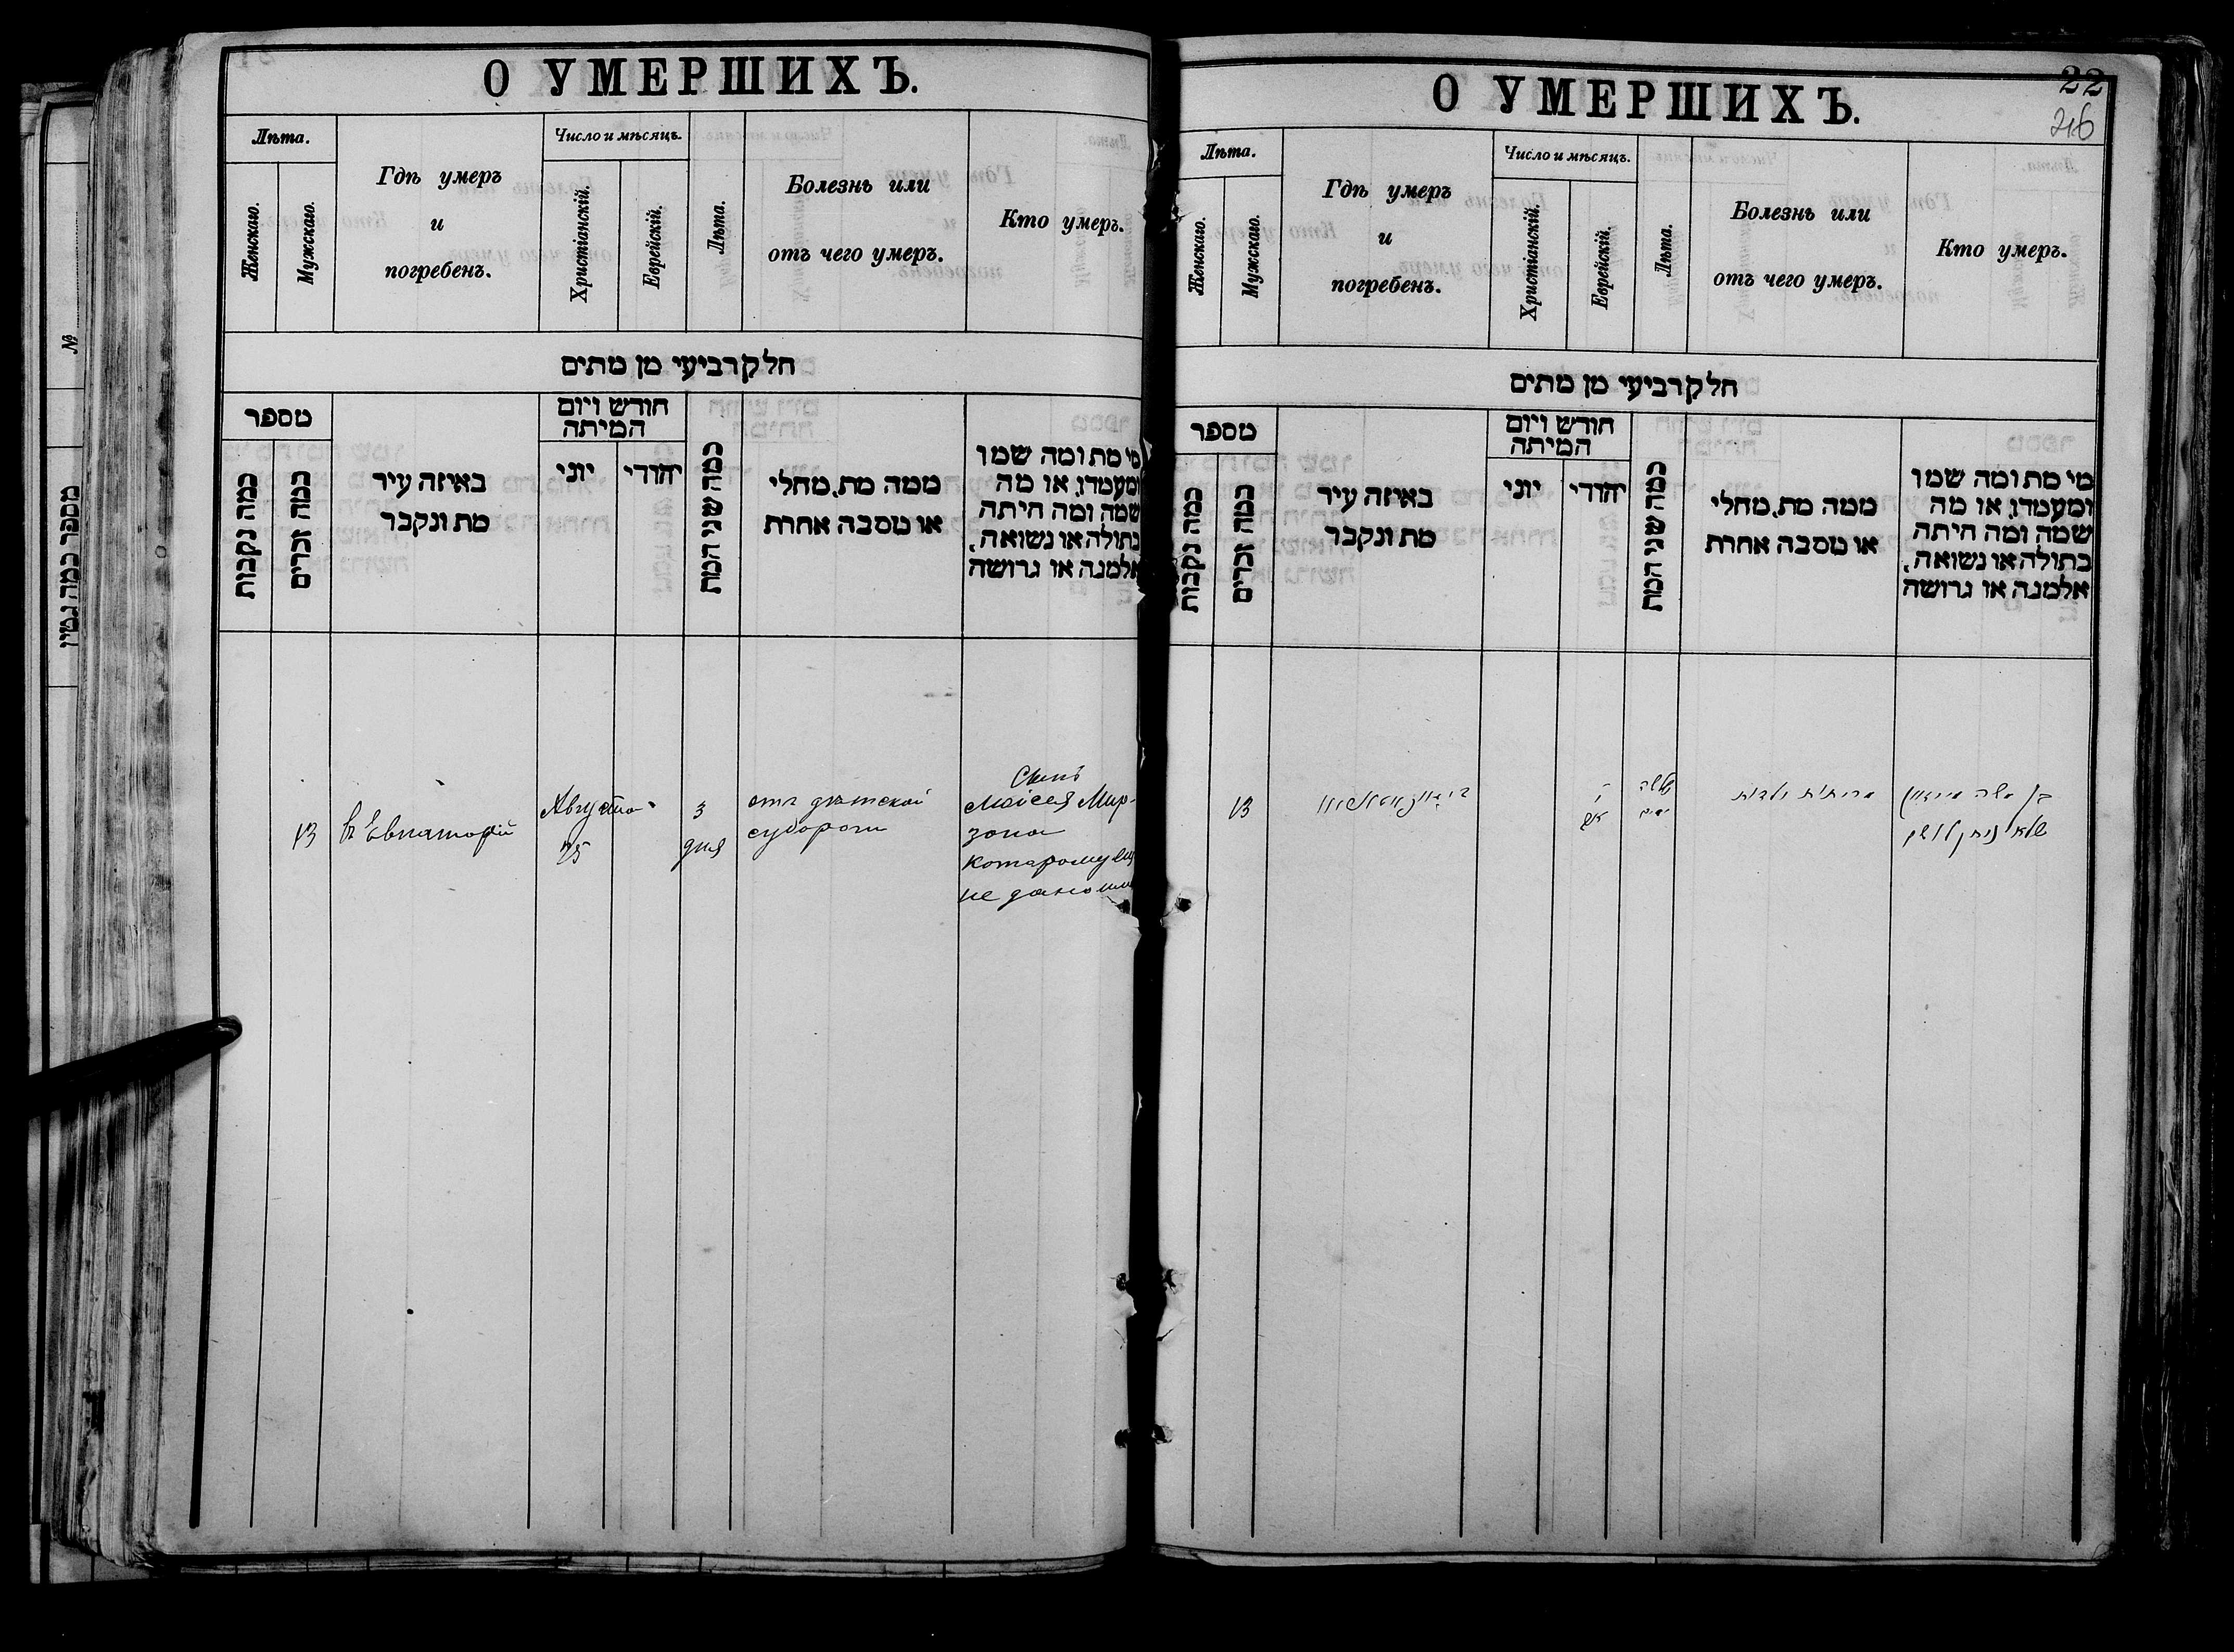 О УМЕРШИХЪ.
Лѣта.
Женскаго.
Мужскаго.
Гдѣ умеръ
и
погребенъ.
Число и мѣсяцъ.
Христіанскій.
Еврейскій.
Лѣта.
Болезнь или
отъ чего умеръ.
Кто умеръ.
חלק רביעי מן מתים
מספר
כמה נקבות
כמה זכרים
באיזה עיר
מת ונקבר
חודש ויום
המיתה
יוני
יהודי
כמה שני המת
ממה מת, מחלי
או מסבה אחרת
מי מת ומה שמו
ומעמדו, או מה
שמה ומה היתה
בתולה או נשואה,
אלמנה או גרושה
13
въ Евпаторій
Августа
25
3
дня
отъ дѣтской
судороги
Сынъ
Моисея Мир-
зона
которому
не дано
№
מספר כמה גטין
О УМЕРШИХЪ.
22
Лѣта.
Женскаго.
Мужскаго.
Гдѣ умеръ
и
погребенъ.
Число и мѣсяцъ.
Христіанскій.
Еврейскій.
Лѣта.
Болезнь или
отъ чего умеръ.
Кто умеръ.
חלק רביעי מן מתים
מספר
כמה נקבות
כמה זכרים
באיזה עיר
מת ונקבר
חודש ויום
המיתה
יוני
יהודי
כמה שני המת
ממה מת, מחלי
או מסבה אחרת
מי מת ומה שמו
ומעמדו, או מה
שמה ומה היתה
בתולה או נשואה,
אלמנה או גרושה
13
שלשה
ימים
בן משה מירזון